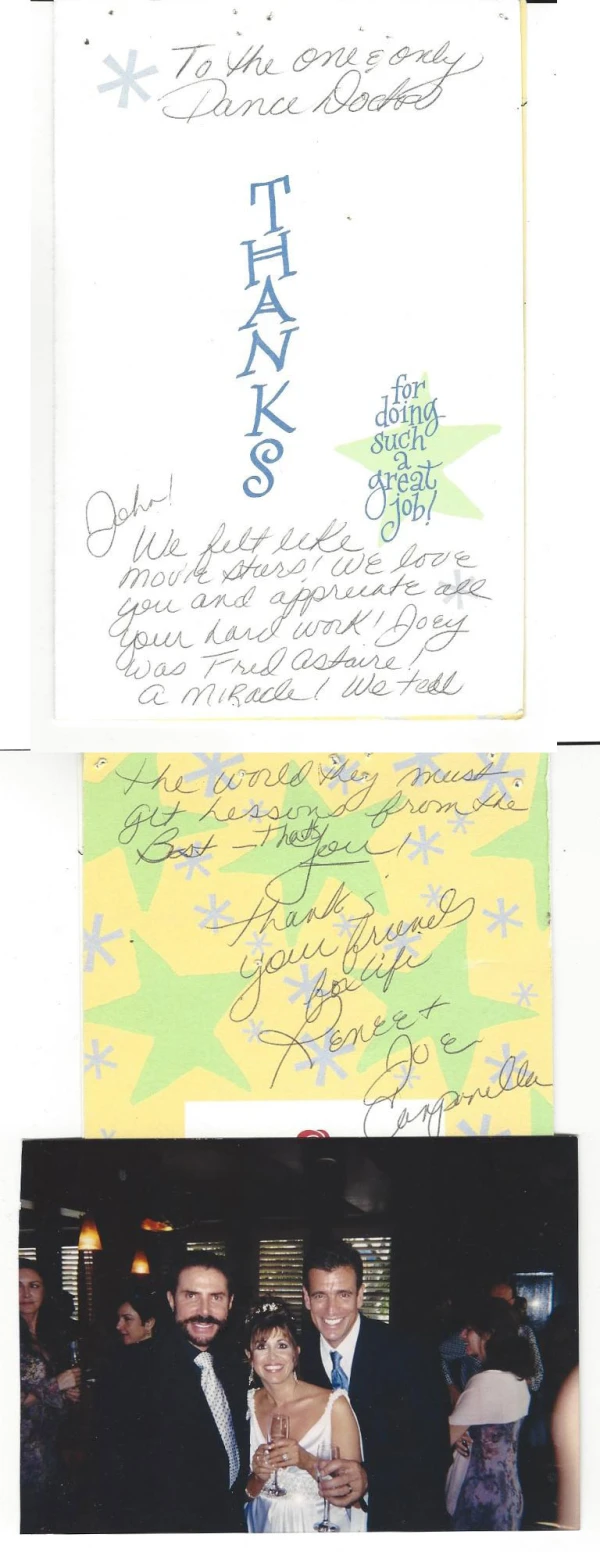 To the one & only
Dance Doctor
THANKS
for
doing
such
a
great
job!
John!
We felt like
movie stars! We love
you and appreciate all
your hard work! Joey
was Fred Astaire!
A miracle! We tell
the world they must
get lessons from the
Best – That's you!
Thanks
your friends
for life
Renee +
Joe
Campanella